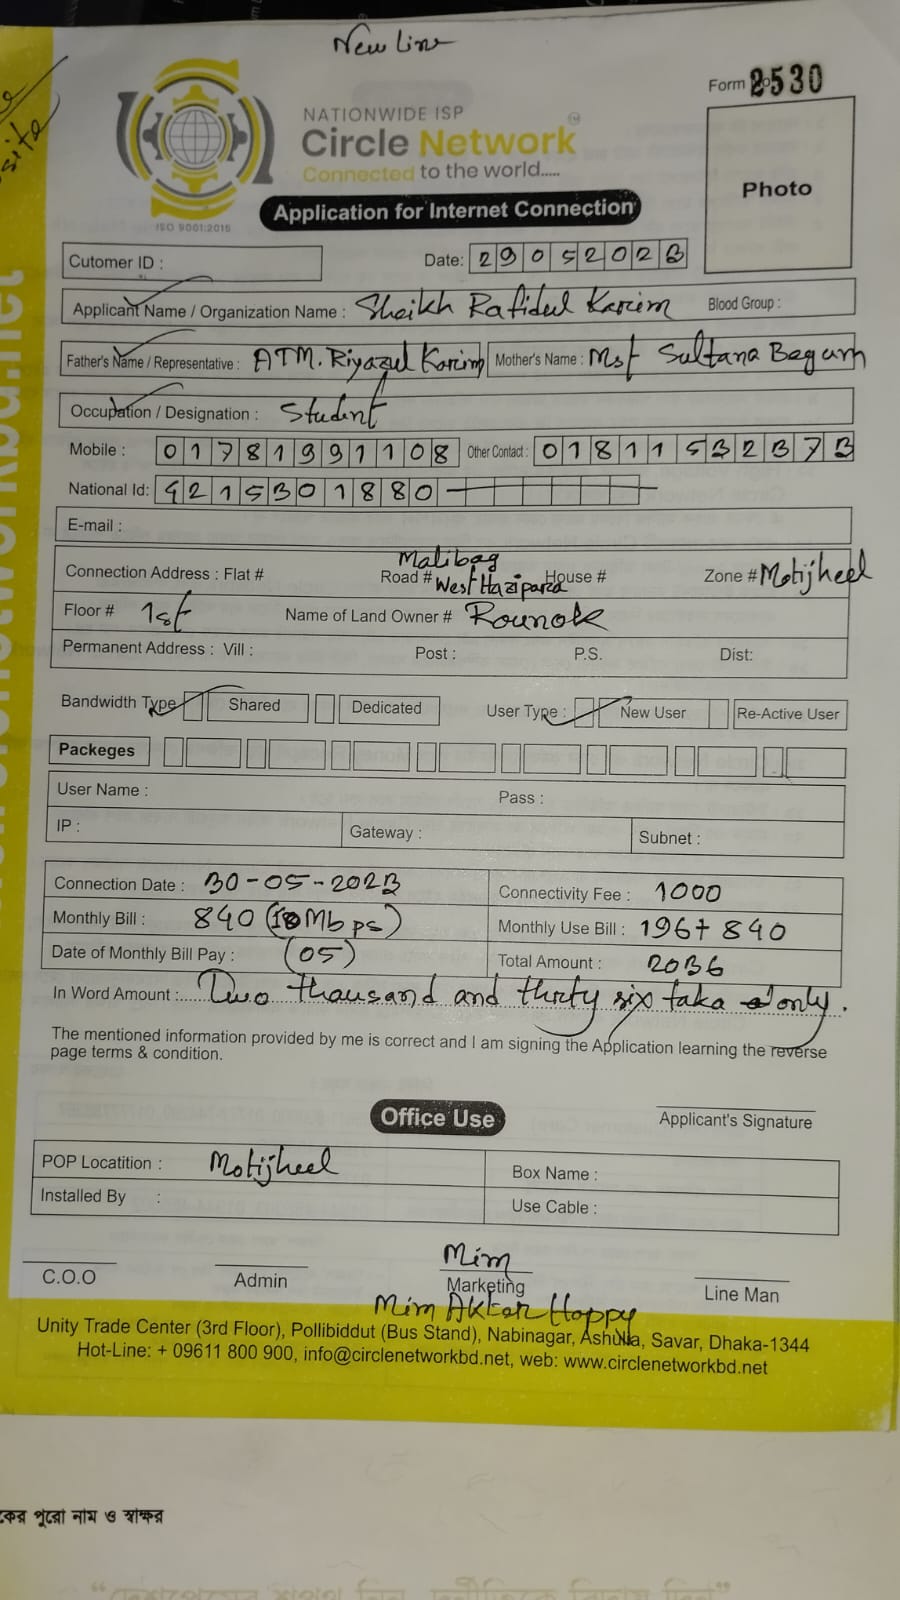 New Line
site
Form 2530
NATIONWIDE ISP
Circle Network
Connected to the world.....
ISO 9001:2015
Application for Internet Connection
Photo
Cutomer ID :
Date: 29052023
Applicant Name / Organization Name : Sheikh Rafidul Karim Blood Group :
Father's Name / Representative : ATM. Riyazul Karim Mother's Name : Mst Sultana Begum
Occupation / Designation : Student
Mobile : 01781991108 Other Contact : 01811532373
National Id: 4215301880
E-mail :
Malibag
Connection Address : Flat # Road # West Hazipara House # Zone # Motijheel
Floor # 1st Name of Land Owner # Rounok
Permanent Address : Vill : Post : P.S. Dist:
Bandwidth Type Shared Dedicated User Type : New User Re-Active User
Packeges
User Name : Pass :
IP : Gateway : Subnet :
Connection Date : 30-05-2023 Connectivity Fee : 1000
Monthly Bill : 840 (10Mbps) Monthly Use Bill : 196+ 840
Date of Monthly Bill Pay : (05) Total Amount : 2036
In Word Amount : Two thousand and thirty six taka only.
The mentioned information provided by me is correct and I am signing the Application learning the reverse
page terms & condition.
Office Use
Applicant's Signature
POP Locatition : Motijheel Box Name :
Installed By : Use Cable :
Mim
C.O.O Admin Marketing Line Man
Mim Akter Happy
Unity Trade Center (3rd Floor), Pollibiddut (Bus Stand), Nabinagar, Ashulia, Savar, Dhaka-1344
Hot-Line: + 09611 800 900, info@circlenetworkbd.net, web: www.circlenetworkbd.net
কের পুরো নাম ও স্বাক্ষর